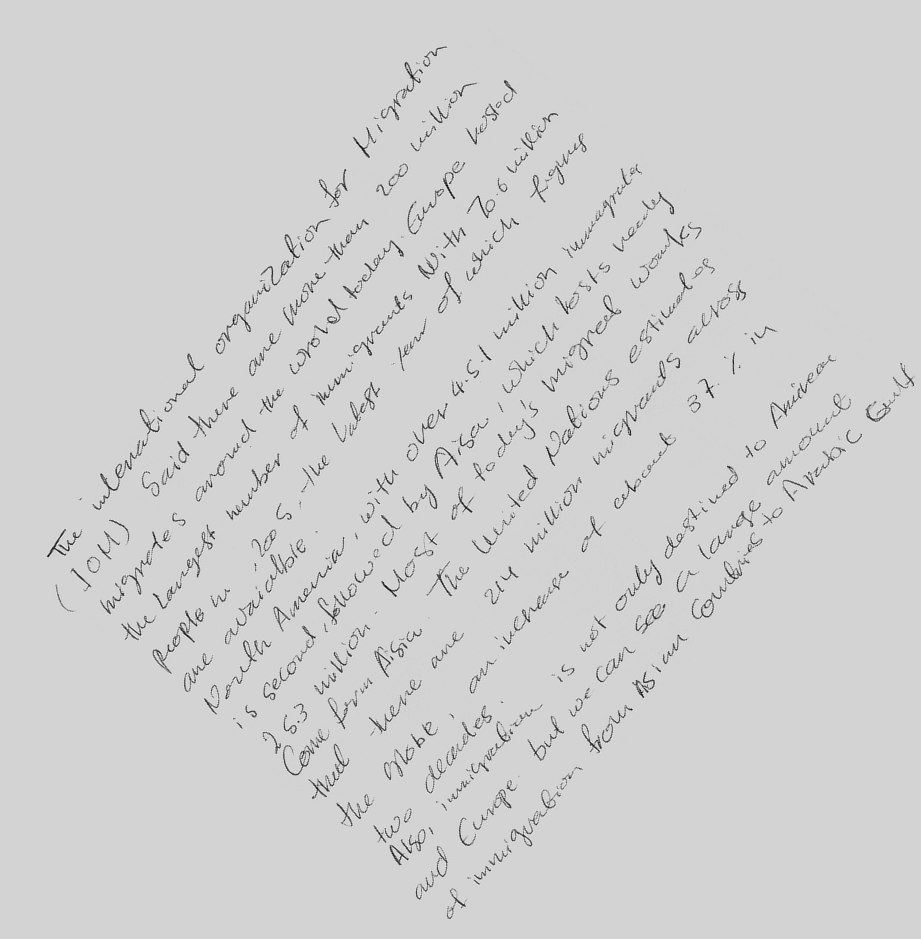 The intenational organization for Migration
(IOM) Said there are more than 200 million
migrates around the wrold today. Europe hosted
the Largest number of immigrants With 70.6 million
people in 2005, the Latest year of which figures
are avaialble.
North America, with over 45.1 million immagrates
is second, followed by Aisa, which hosts nearly
25.3 million. Most of today's migreat works
Come form Aisia. The United Nations estimates
that there are 214 million migrants across
the globe, an increase of about 37 % in
two decades.
Also, immigration is not only destined to
and Europe but we can see a large amount
of immigration from Asian Countries to Arabic Gulf